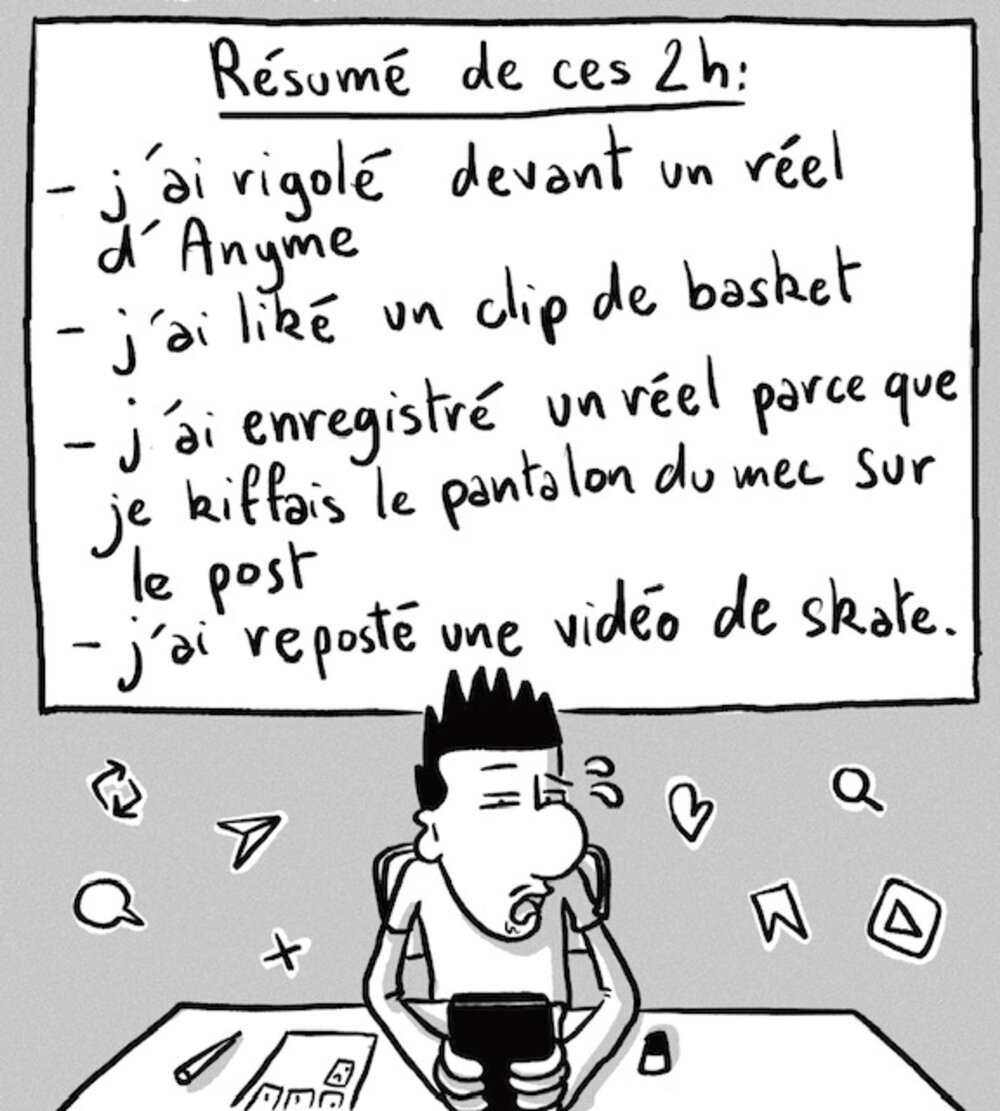 Résumé de ces 2h:
- j'ai rigolé devant un réel
d'Anyme
- j'ai liké un clip de basket
- j'ai enregistré un réel parce que
je kiffais le pantalon du mec sur
le post
- j'ai reposté une vidéo de skate.